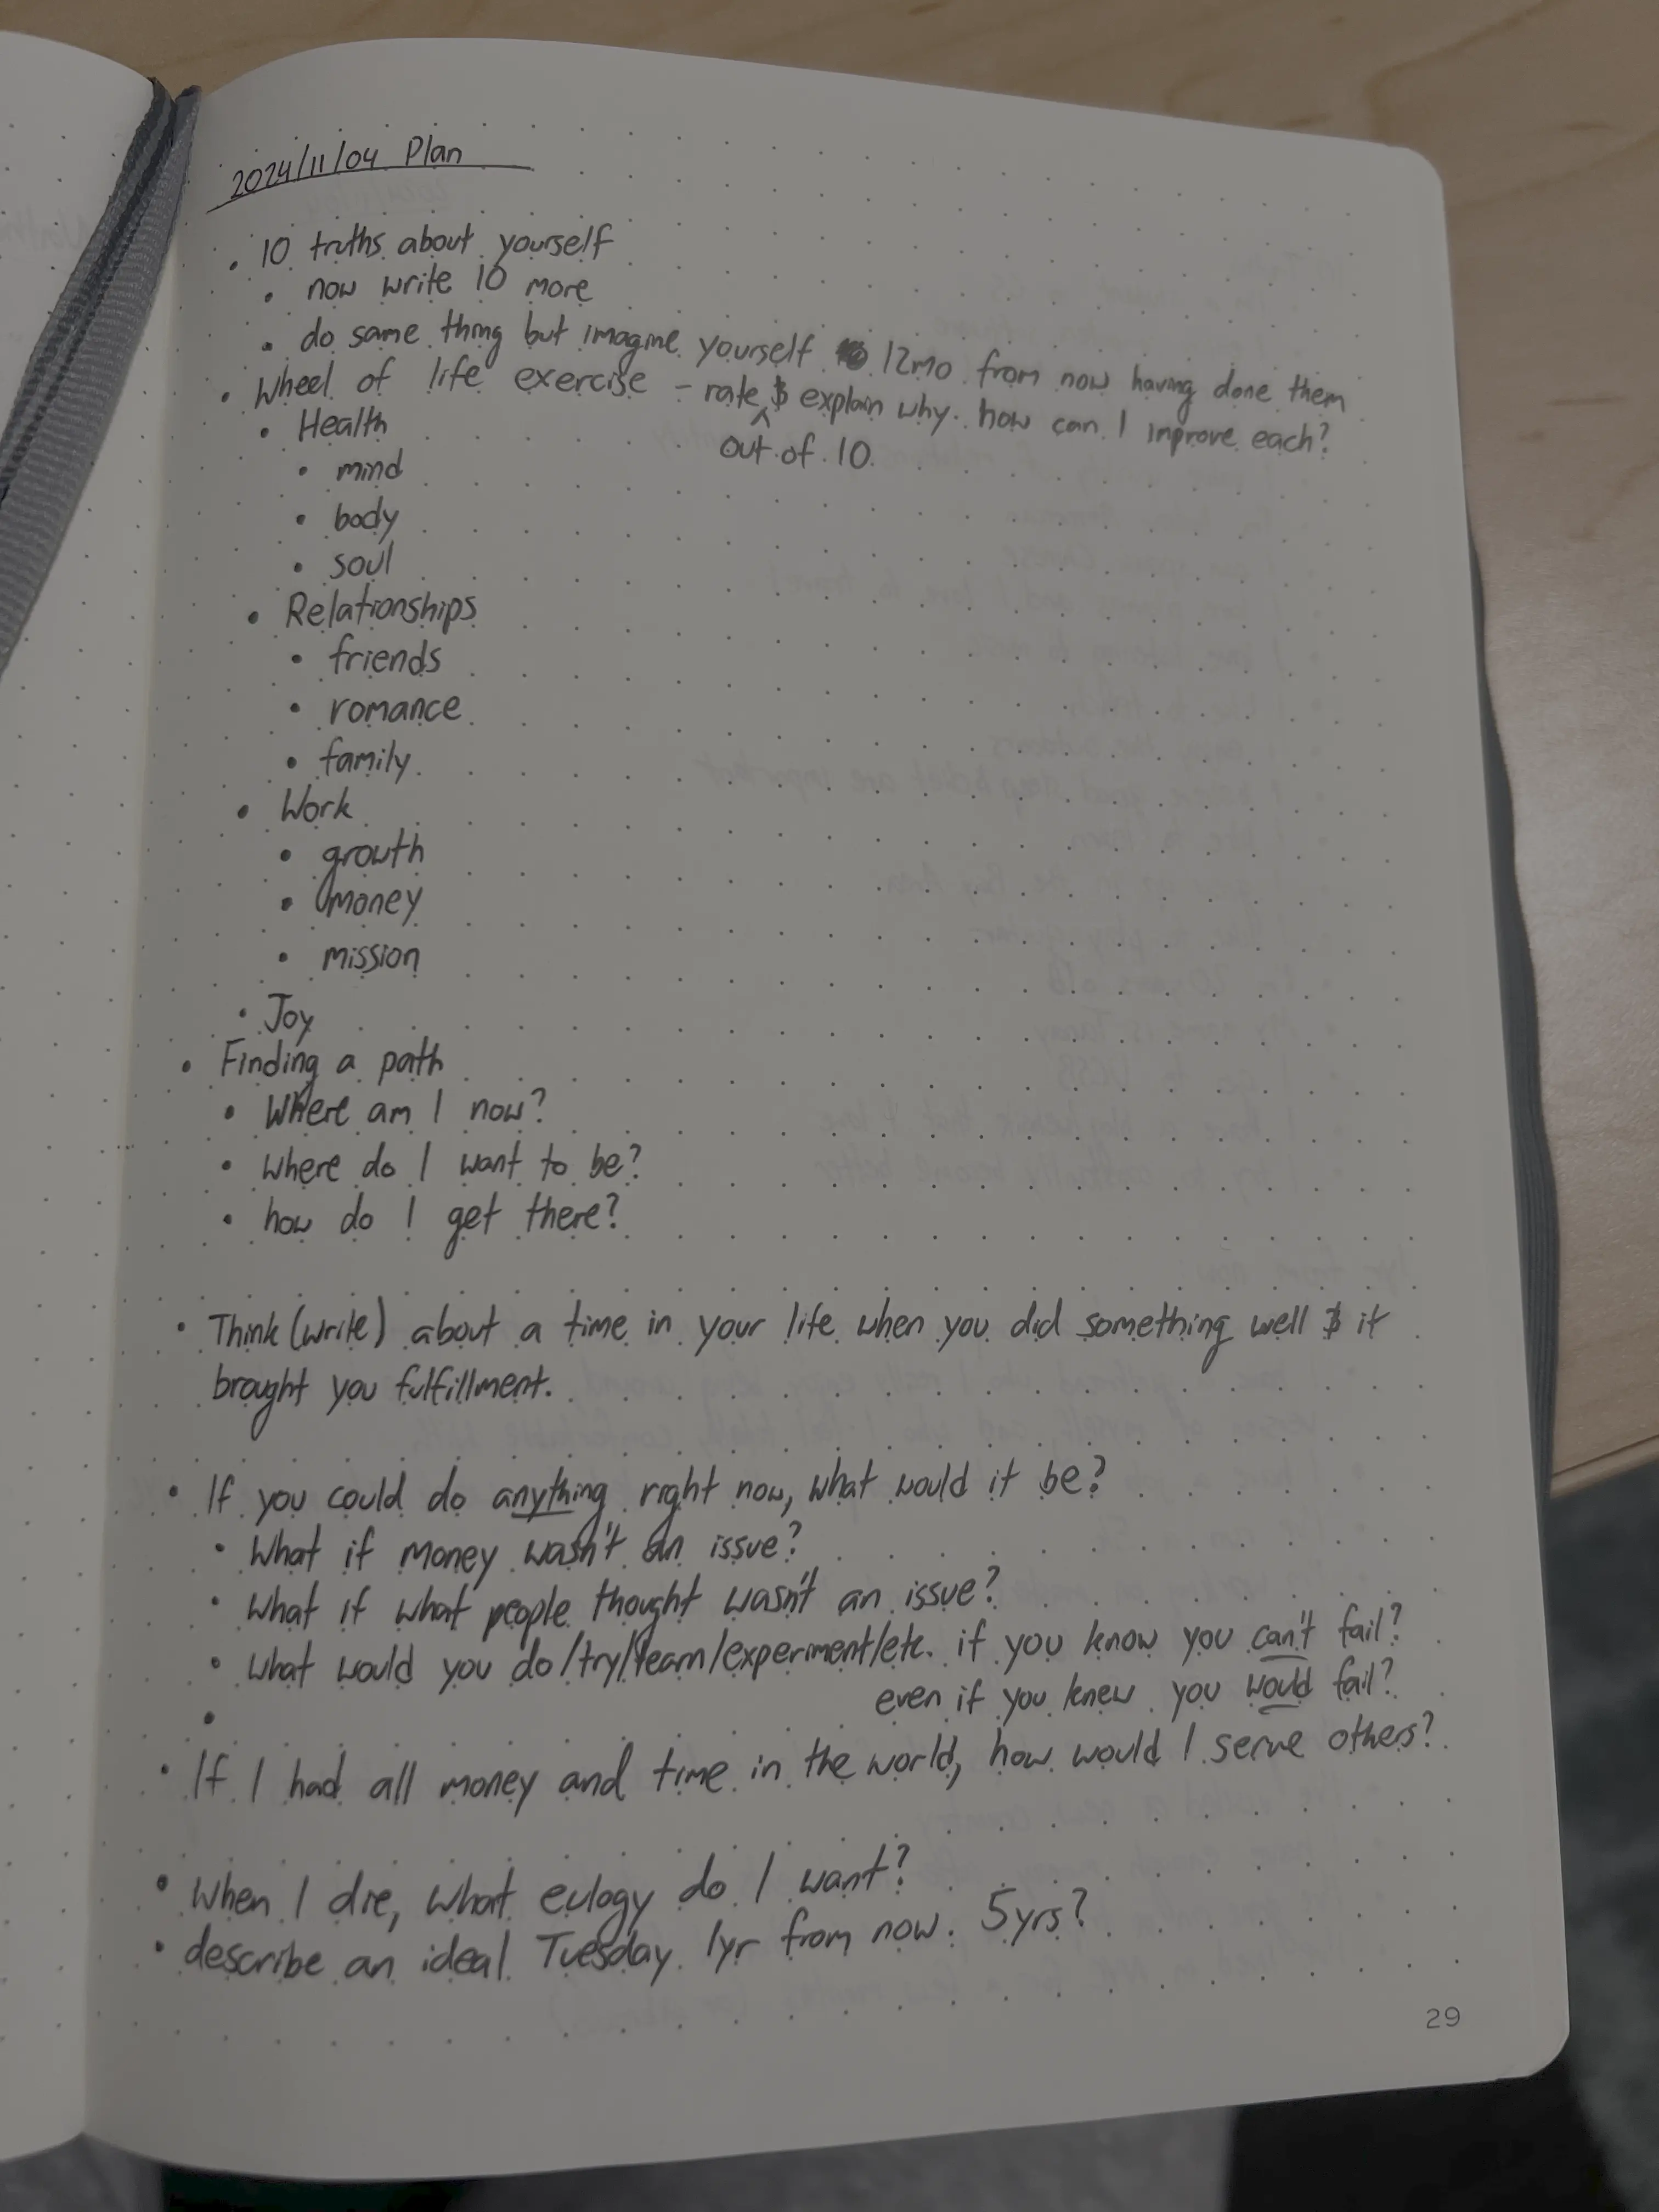 2024/11/04 Plan
• 10 truths about yourself
• now write 10 more
• do same thing but imagine yourself 12mo from now having done them
• Wheel of life exercise - rate & explain why. how can I inprove each?
^
out of 10
• Health
• mind
• body
• soul
• Relationships
• friends
• romance
• family
• Work
• growth
• money
• mission
• Joy
• Finding a path
• Where am I now?
• where do I want to be?
• how do I get there?
• Think (write) about a time in your life when you did something well & it
brought you fulfillment.
• If you could do anything right now, what would it be?
• What if money wasn't an issue?
• What if what people thought wasn't an issue?
• What would you do/try/learn/experiment/etc. if you know you can't fail?
even if you knew you would fail?
•
• If I had all money and time in the world, how would I serve others?
• When I die, what eulogy do I want?
• describe an ideal Tuesday 1yr from now. 5yrs?
29